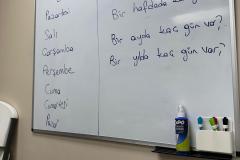 Pazartesi
Salı
Çarşamba
Perşembe
Cuma
Cumartesi
Pazar
Bir haftada
Bir ayda kaç gün var?
Bir yılda kaç gün var?